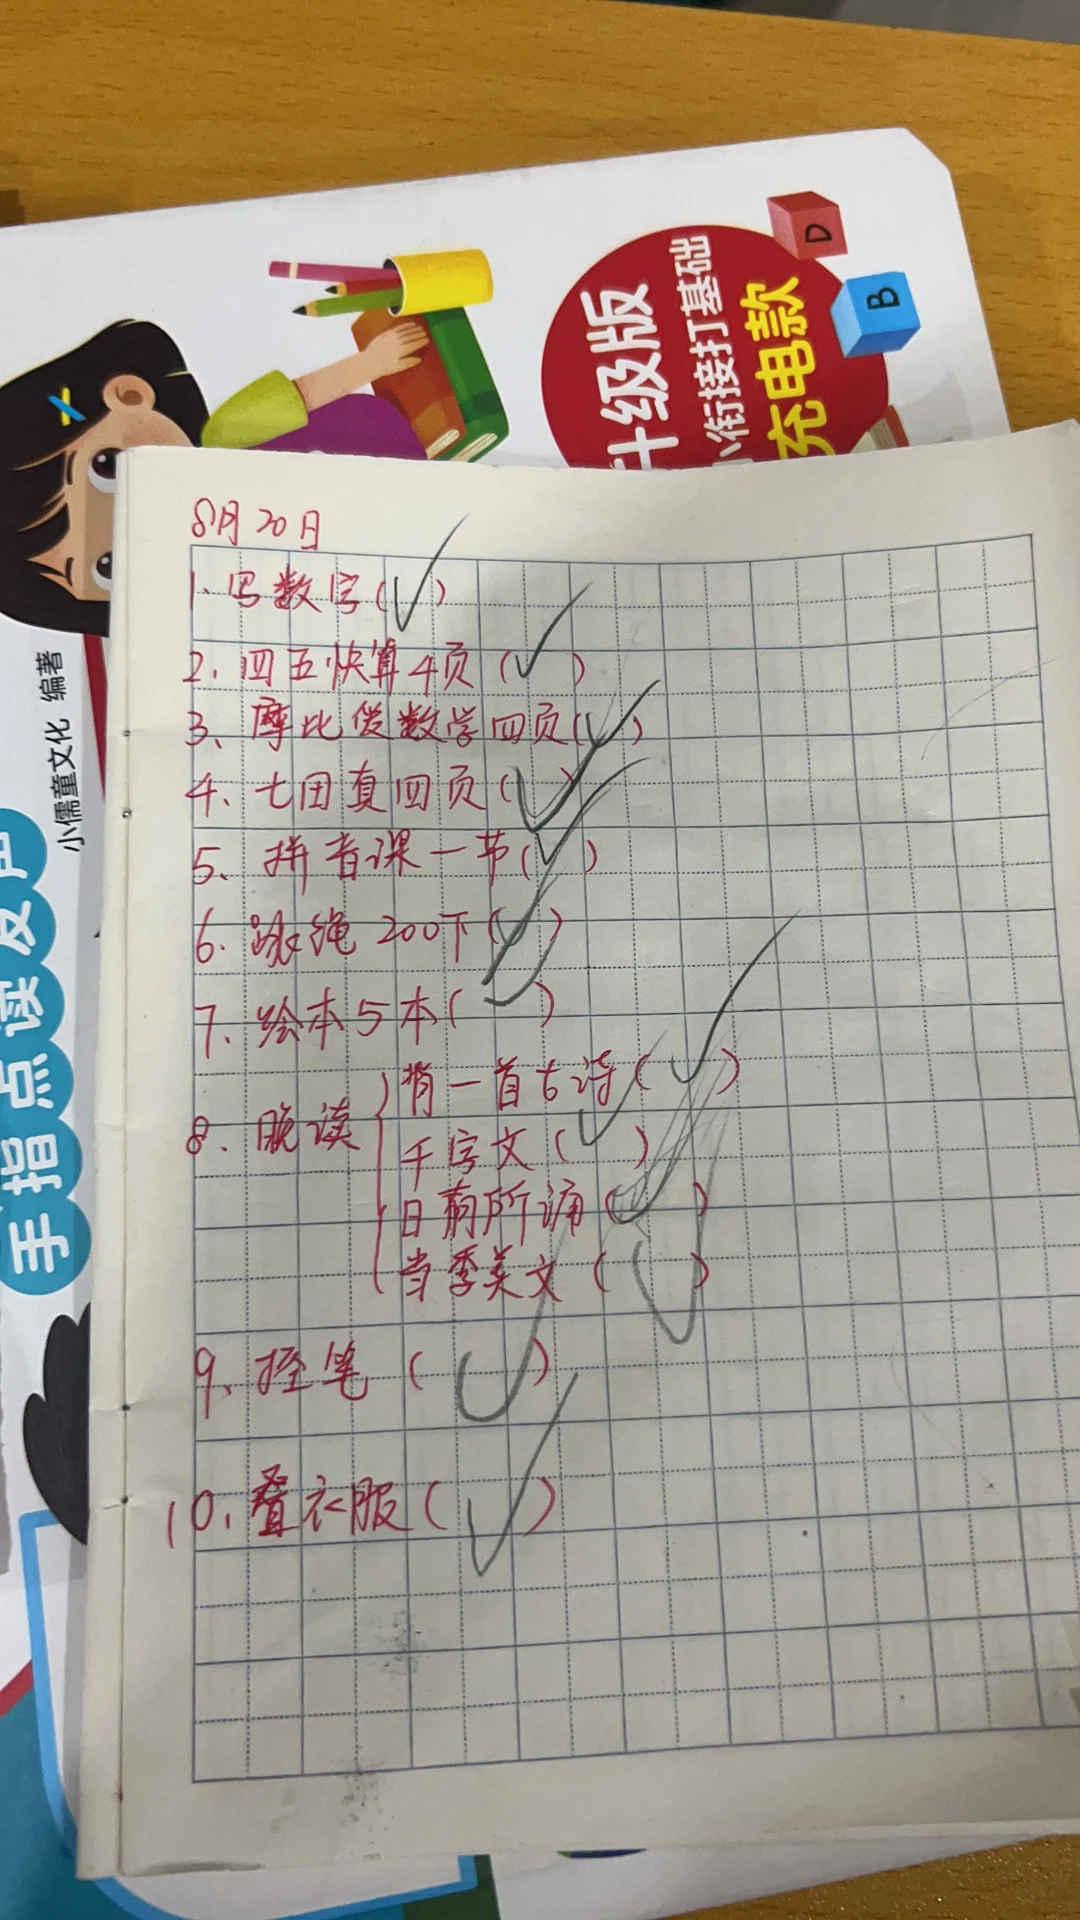 D
B
升级版
小衔接打基础
充电款
小儒童文化 编著
手指点读发声
8月20日
1. 写数字(✓)
2. 四五快算4页(✓)
3、摩比爱数学四页(✓)
4、七田真四页(✓)
5、拼音课一节(✓)
6. 跳绳200下(✓)
7、绘本5本(✓)
8、晚读 背一首古诗(✓)
千字文(✓)
日有所诵(✓)
当季美文(✓)
9、控笔(✓)
10、叠衣服(✓)